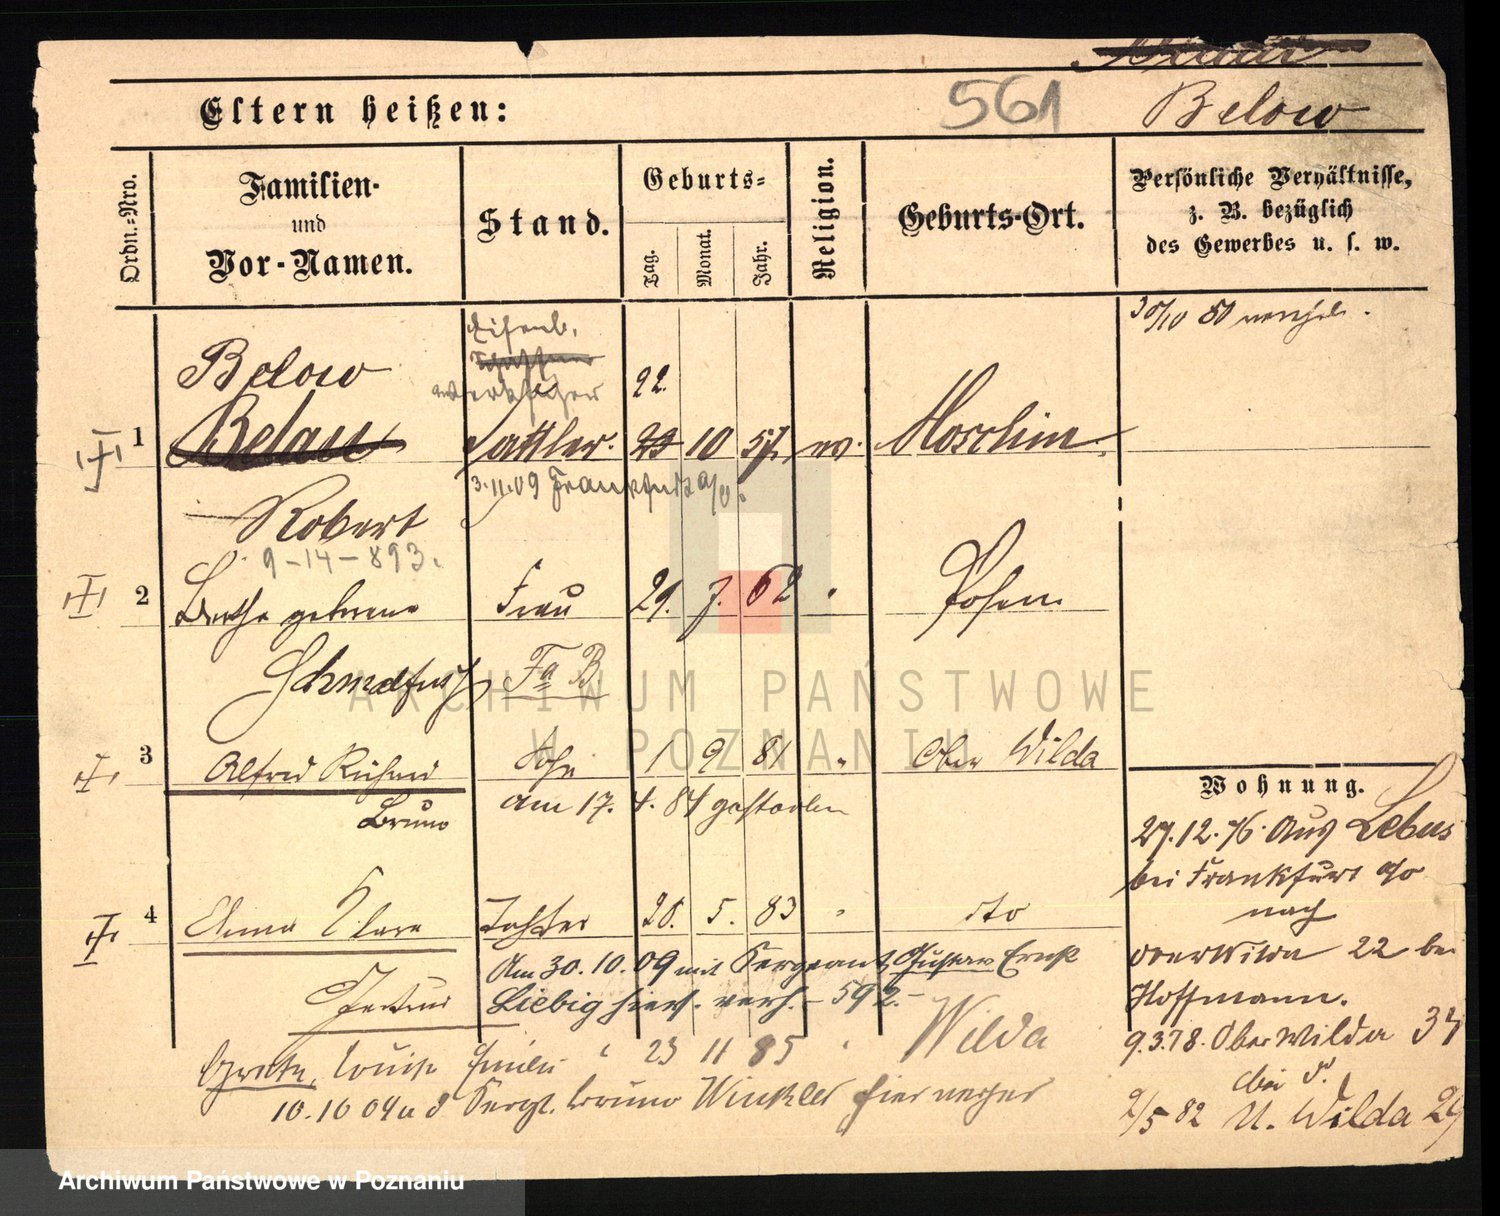 Below
561
Eltern heißen:
Ordn.-Nro.
Familien-
und
Vor-Namen.
Stand.
Geburts-
Tag.
Monat.
Jahr.
Religion.
Geburts-Ort.
Persönliche Verhältnisse,
z. B. bezüglich
des Gewerbes u. s. w.
30/10 80
Eisenb.
Below
22.
1
Belau
Sattler.
23 10 57
Moschin.
3.11.09 Frankfurt a/O.
Robert
9-14-893.
2
Bertha geborene
Frau
29. 7. 62
"
Posen
Fa B.
3
Alfred Richard
Sohn
1 9 81
"
Ober Wilda
Bruno
am 17. 4. 84 gestorben
Wohnung.
27.12.76. Aus Lebus
bei Frankfurt a/O
nach
Ober Wilda 22 bei
Hoffmann.
9.3.78. Ober Wilda 34
4
Anna Clara
Tochter
28. 5. 83
"
dto
Am 30.10.09 mit Sergeant Gustav Ernst
Liebig hier verh. - 592.-
Louise
23 11 85
Wilda
10.10 04 Sergt. Bruno Winkler hier
2/5 82 U. Wilda 29
ARCHIWUM PAŃSTWOWE
W POZNANIU
Archiwum Państwowe w Poznaniu